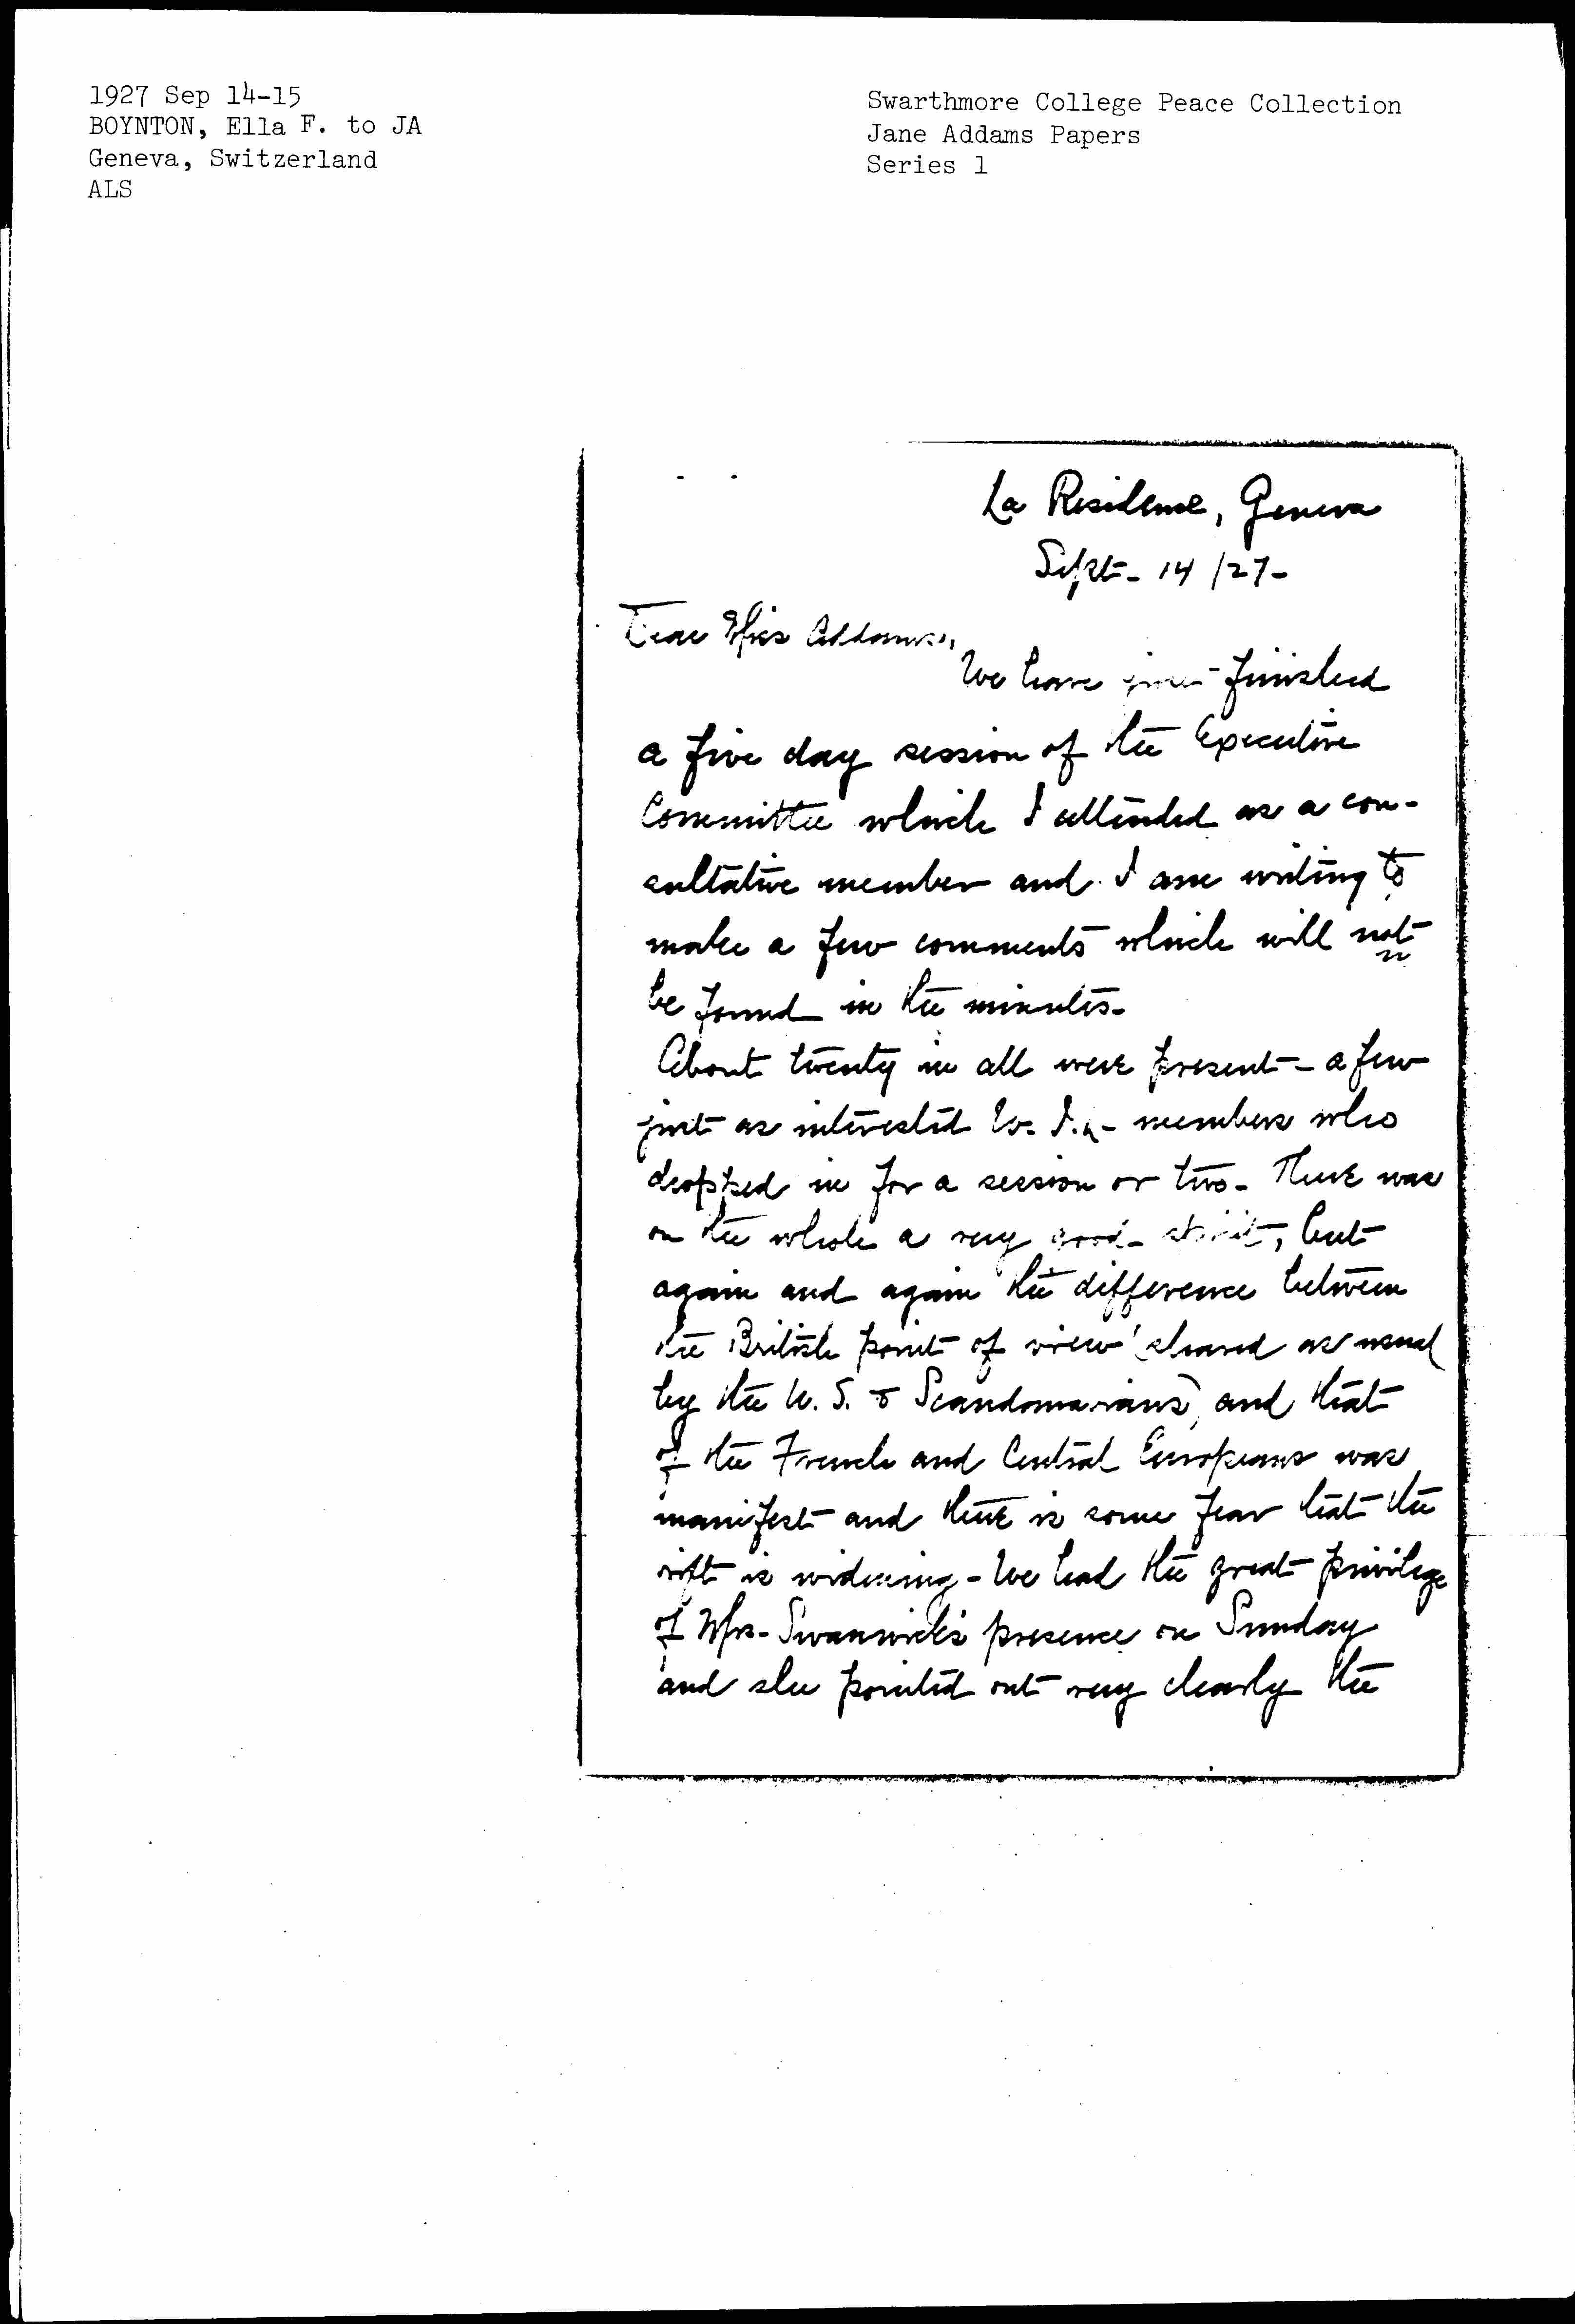 1927 Sep 14-15
BOYNTON, Ella F. to JA
Geneva, Switzerland
ALS
Swarthmore College Peace Collection
Jane Addams Papers
Series 1
La Residence, Geneva
Sept- 14 /27-
Dear Miss Addams,
We have just finished
a five day session of the Executive
Committee which I attended as a con-
sultative member and I am writing to
make a few comments which will not
be found in the minutes-
About twenty in all were present - a few
just as interested W. I. L- members who
dropped in for a session or two- There was
on the whole a very good spirit, but
again and again the difference between
the British point of view (shared as usual
by the U. S. & Scandanavians) and that
of the French and Central Europeans was
manifest and there is some fear that the
rift is widening - We had the great privilege
of Mrs- Swanwick's presence on Sunday
and she pointed out very clearly the